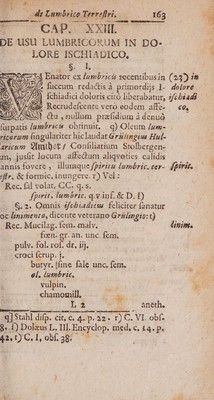 de Lumbrico Terrestri. 163
CAP. XXIII.
DE USU LUMBRICORUM IN DO-
LORE ISCHIADICO.
§. I.
VEnator ex lumbricis recentibus in (23) in
succum redactis à primordijs I- dolore
schiadici doloris citò liberabatur, ischiadi
Recrudescente verò eodem affe- co.
ctu, nullum præsidium à denuò
usurpatis lumbricis obtinuit. q) Oleum lum-
bricorum singulariter hic laudat Grülingius
Consiliarium Stolbergen-
sem, justè locum affectum aliqvoties calidis
pannis fovere, illumqve spiritu lumbric. ter- spirit.
restr. & formic. inungere. r) Vel:
Rec. sal volat. CC. q. s.
spirit. lumbric. q. v
§. 2. Omnis ischiadicus feliciter sanatur
hoc linimento, dicente veterano Grülingio: t)
Rec. Mucilag. sem. malv. linim.
fœn. gr. an. unc. sem.
pulv. fol. ros. dr. iij.
croci scrup. j.
butyr. sine sale unc. sem.
ol. lumbric.
vulpin.
chamomill.
L 2 aneth.
q) Stahl disp. cit. c. 4. p. 22. r) C. VI. obs.
8. s) Dolæus L. III. Encyclop. med. c. 14. p.
42. t) C. I. obs. 38.